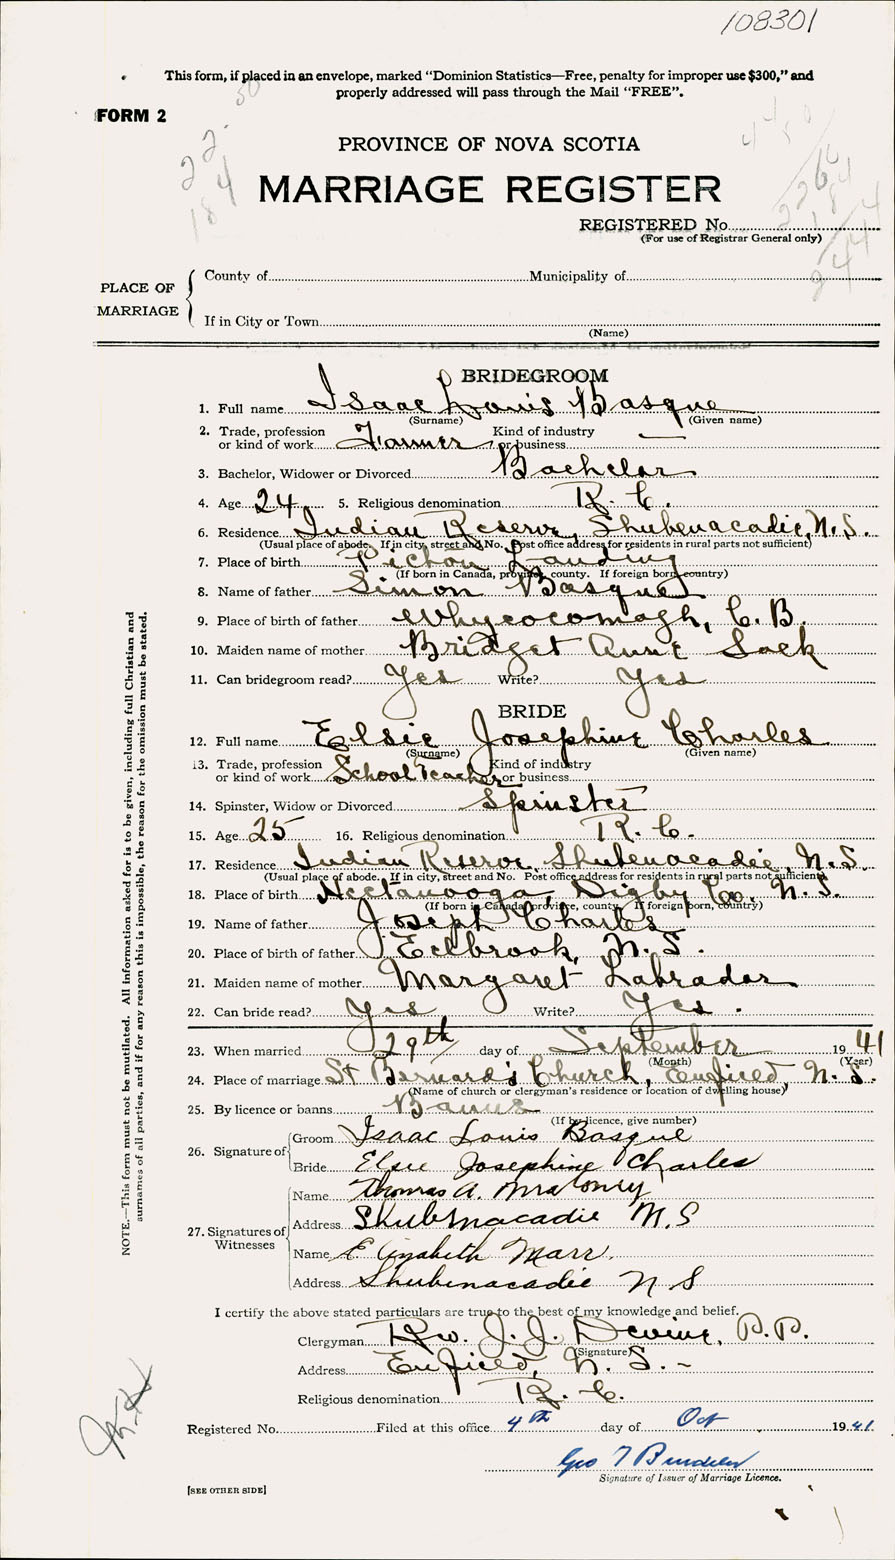 108301
This form, if placed in an envelope, marked "Dominion Statistics—Free, penalty for improper use $300," and
properly addressed will pass through the Mail "FREE".
FORM 2
PROVINCE OF NOVA SCOTIA
MARRIAGE REGISTER
REGISTERED No.
(For use of Registrar General only)
PLACE OF MARRIAGE
County of Municipality of
If in City or Town
(Name)
BRIDEGROOM
1. Full name Isaac Louis Basque
(Surname) (Given name)
2. Trade, profession or kind of work Farmer Kind of industry or business —
3. Bachelor, Widower or Divorced Bachelor
4. Age 24 5. Religious denomination R. C.
6. Residence Indian Reserve, Shubenacadie, N. S.
(Usual place of abode. If in city, street and No. Post office address for residents in rural parts not sufficient)
7. Place of birth Pictou Landing
(If born in Canada, province, county. If foreign born, country)
8. Name of father Simon Basque
9. Place of birth of father Whycocomagh, C. B.
10. Maiden name of mother Bridget Anne Sack
11. Can bridegroom read? Yes Write? Yes
BRIDE
12. Full name Elsie Josephine Charles
(Surname) (Given name)
13. Trade, profession or kind of work School Teacher Kind of industry or business
14. Spinster, Widow or Divorced Spinster
15. Age 25 16. Religious denomination R. C.
17. Residence Indian Reserve, Shubenacadie, N. S.
(Usual place of abode. If in city, street and No. Post office address for residents in rural parts not sufficient)
18. Place of birth Hectanooga, Digby Co. N. S.
(If born in Canada, province, county. If foreign born, country)
19. Name of father Joseph Charles
20. Place of birth of father Eelbrook, N. S.
21. Maiden name of mother Margaret Labrador
22. Can bride read? Yes Write? Yes.
23. When married 29th day of September 1941
(Month) (Year)
24. Place of marriage St Bernard's Church, Enfield, N. S.
(Name of church or clergyman's residence or location of dwelling house)
25. By licence or banns Banns
(If by licence, give number)
26. Signature of Groom Isaac Louis Basque
Bride Elsie Josephine Charles
27. Signatures of Witnesses
Name Thomas A. Maloney
Address Shubenacadie N. S
Name Elizabeth Marr.
Address Shubenacadie N S
I certify the above stated particulars are true to the best of my knowledge and belief.
Clergyman Rev. J. J. Devine, P. P.
(Signature)
Address Enfield, N. S. -
Religious denomination R. C.
Registered No. Filed at this office 4th day of Oct 1941
Geo T
Signature of Issuer of Marriage Licence.
[SEE OTHER SIDE]
NOTE.—This form must not be mutilated. All information asked for is to be given, including full Christian and
surnames of all parties, and if for any reason this is impossible, the reason for the omission must be stated.